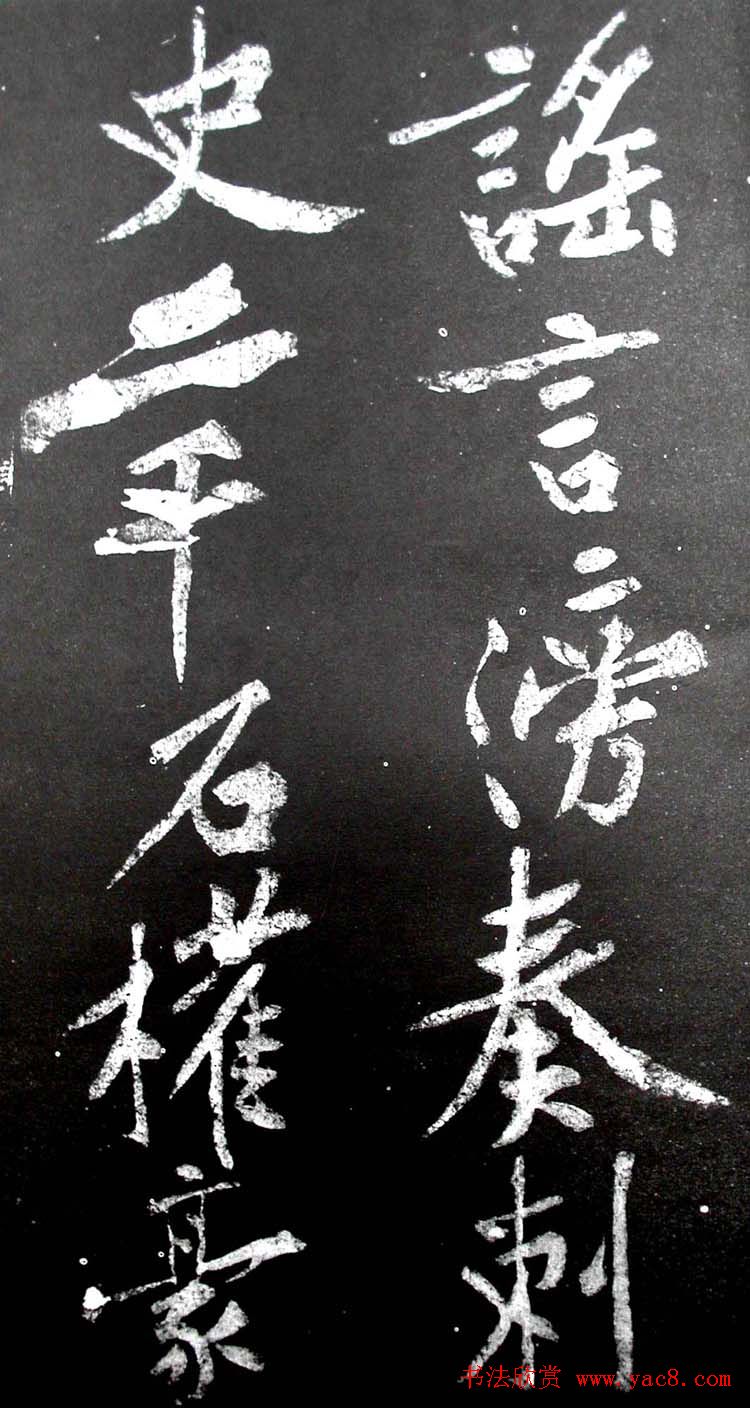 謠言滂奏刺
史二千石權豪
书法欣赏 www.yac8.com